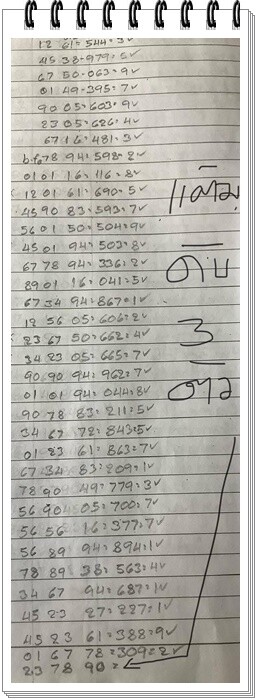 12 61=544=3✓
45 38=979=5✓
67 50=063=9✓
01 49=395=7✓
90 05=603=9✓
23 05=626=4✓
67 16=481=3✓
67 78 94=592=2✓
01 01 16=116=8✓
12 01 61=690=5✓
45 90 83=593=7✓
56 01 50=504=9✓
45 01 94=503=8✓
67 78 94=336=2✓
89 01 16=041=5✓
67 34 94=867=1✓
12 56 05=606=2✓
23 67 50=662=4✓
34 23 05=665=7✓
90 90 94=962=7✓
01 01 94=044=8✓
90 78 83=211=5✓
34 67 72=843=5✓
01 23 61=863=7✓
67 34 83=209=1✓
78 90 49=779=3✓
56 90 05=700=7✓
56 56 16=377=7✓
56 89 94=894=1✓
78 89 38=563=4✓
34 67 94=687=1✓
45 23 27=227=1✓
45 23 61=388=9✓
01 67 78=309=2✓
23 78 90=
แต้ม
ดับ
3
ตัว